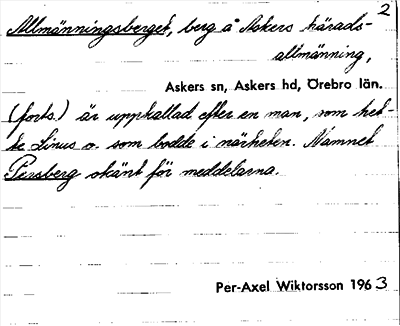 2
Allmänningsberget, berg å Askers härads-
allmänning,
Askers sn, Askers hd, Örebro län.
(forts.) är uppkallad efter en man, som het-
te Linus o. som bodde i närheten. Namnet
Persberg okänt för meddelarna.
Per-Axel Wiktorsson 1963